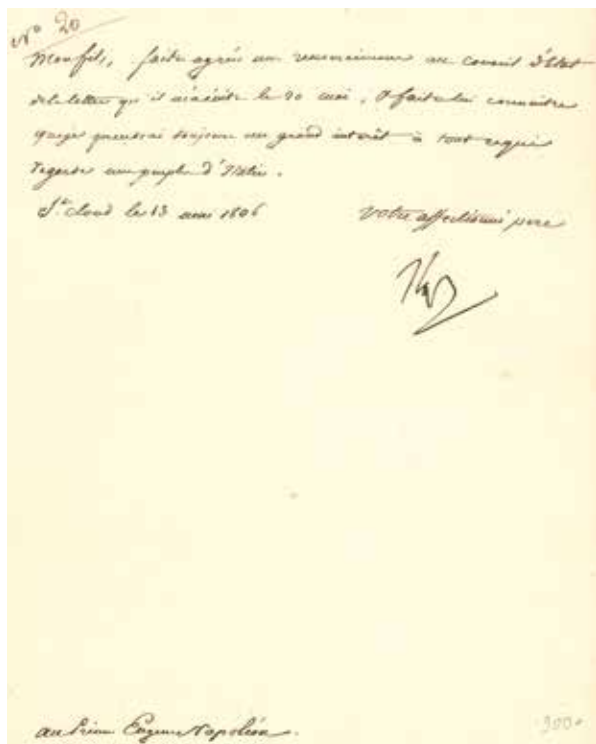 N° 20
Mon fils, faites agréer mes remercimens au Conseil d'Etat
de la lettre qu'il m'a écrite le 20 mai, & faites lui connaitre
que je prendrai toujours un grand intérêt à tout ce qui
regarde mes peuples d'Italie.
St. Cloud le 13 1806
Votre affectionné père
Nap
au Prince Eugene Napoléon.